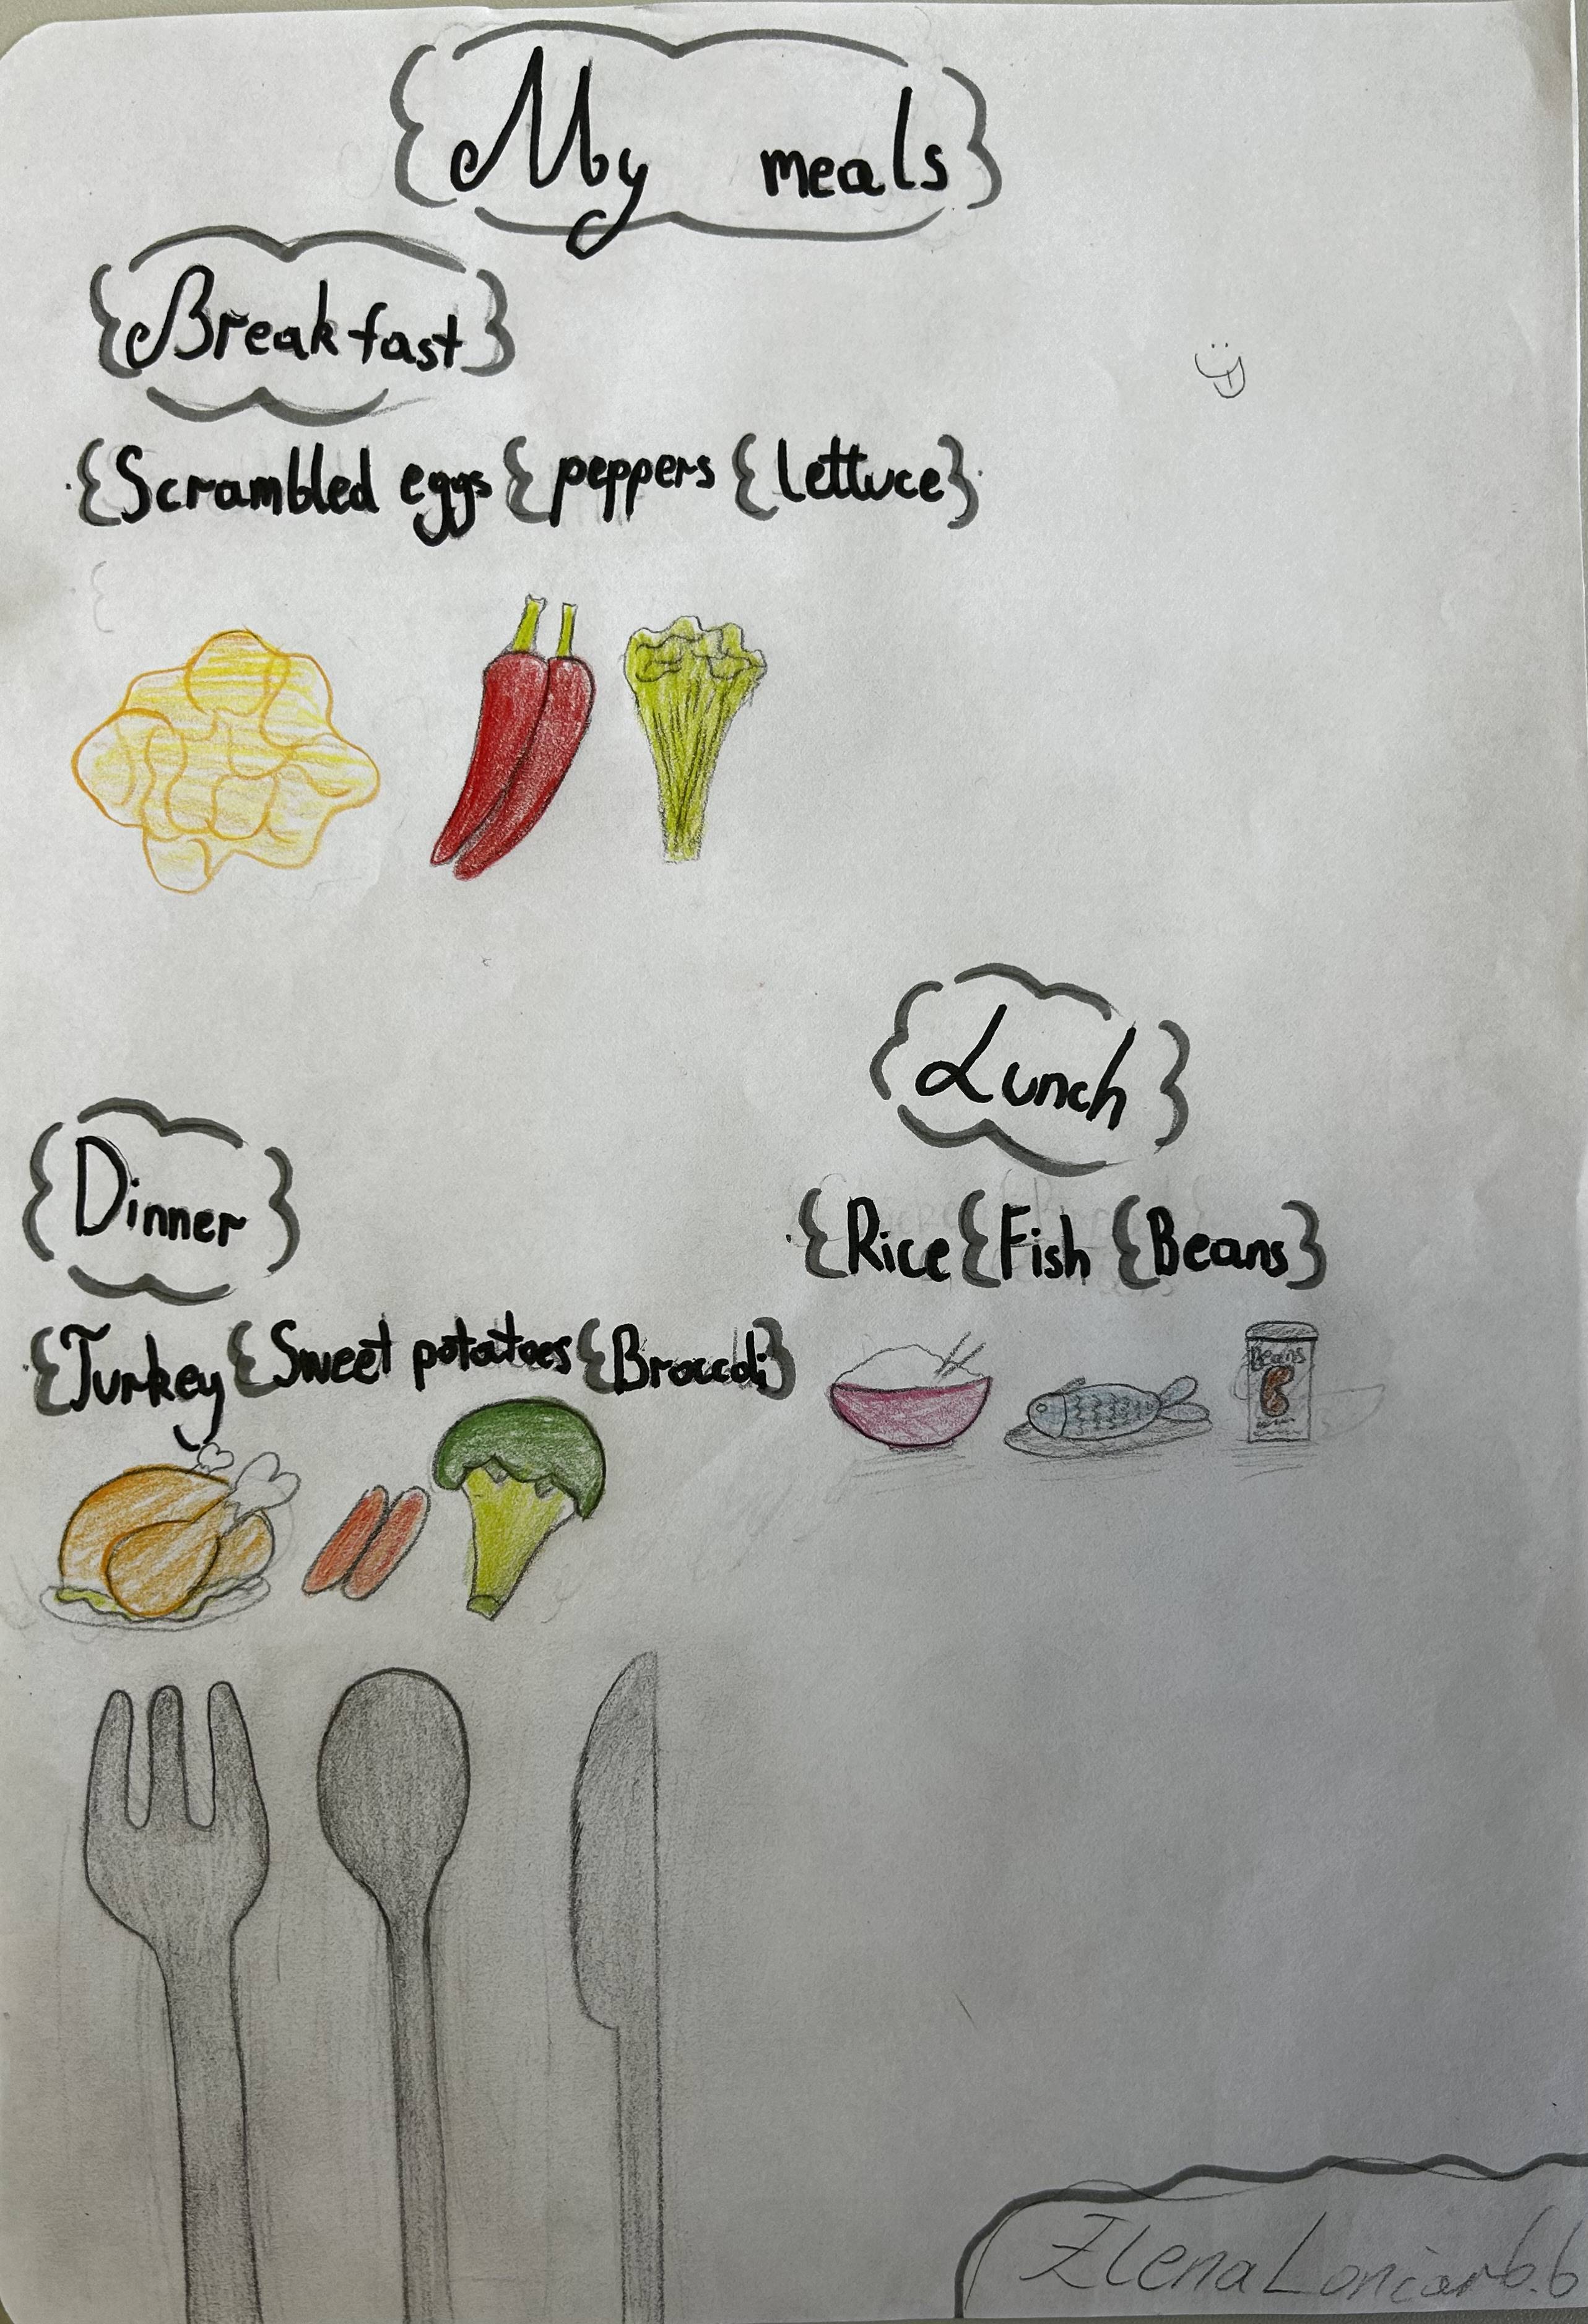 My meals
Breakfast
{Scrambled eggs { peppers { lettuce}
Lunch
{Rice {Fish {Beans}
Beans
Dinner
{Turkey {Sweet potatoes {Broccoli}
Elena Lončar 6.b